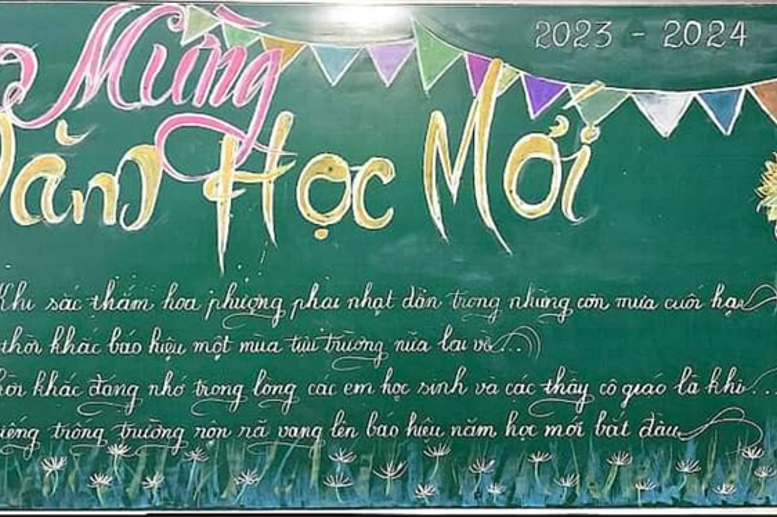 2023 - 2024
Mừng
Năm Học Mới
Khi sắc thắm hoa phượng phai nhạt dần trong những cơn mưa cuối hạ
thời khắc báo hiệu một mùa tựu trường nữa lại về...
khắc đáng nhớ trong lòng các em học sinh và các thầy cô giáo là khi...
tiếng trống trường rộn rã vang lên báo hiệu năm học mới bắt đầu